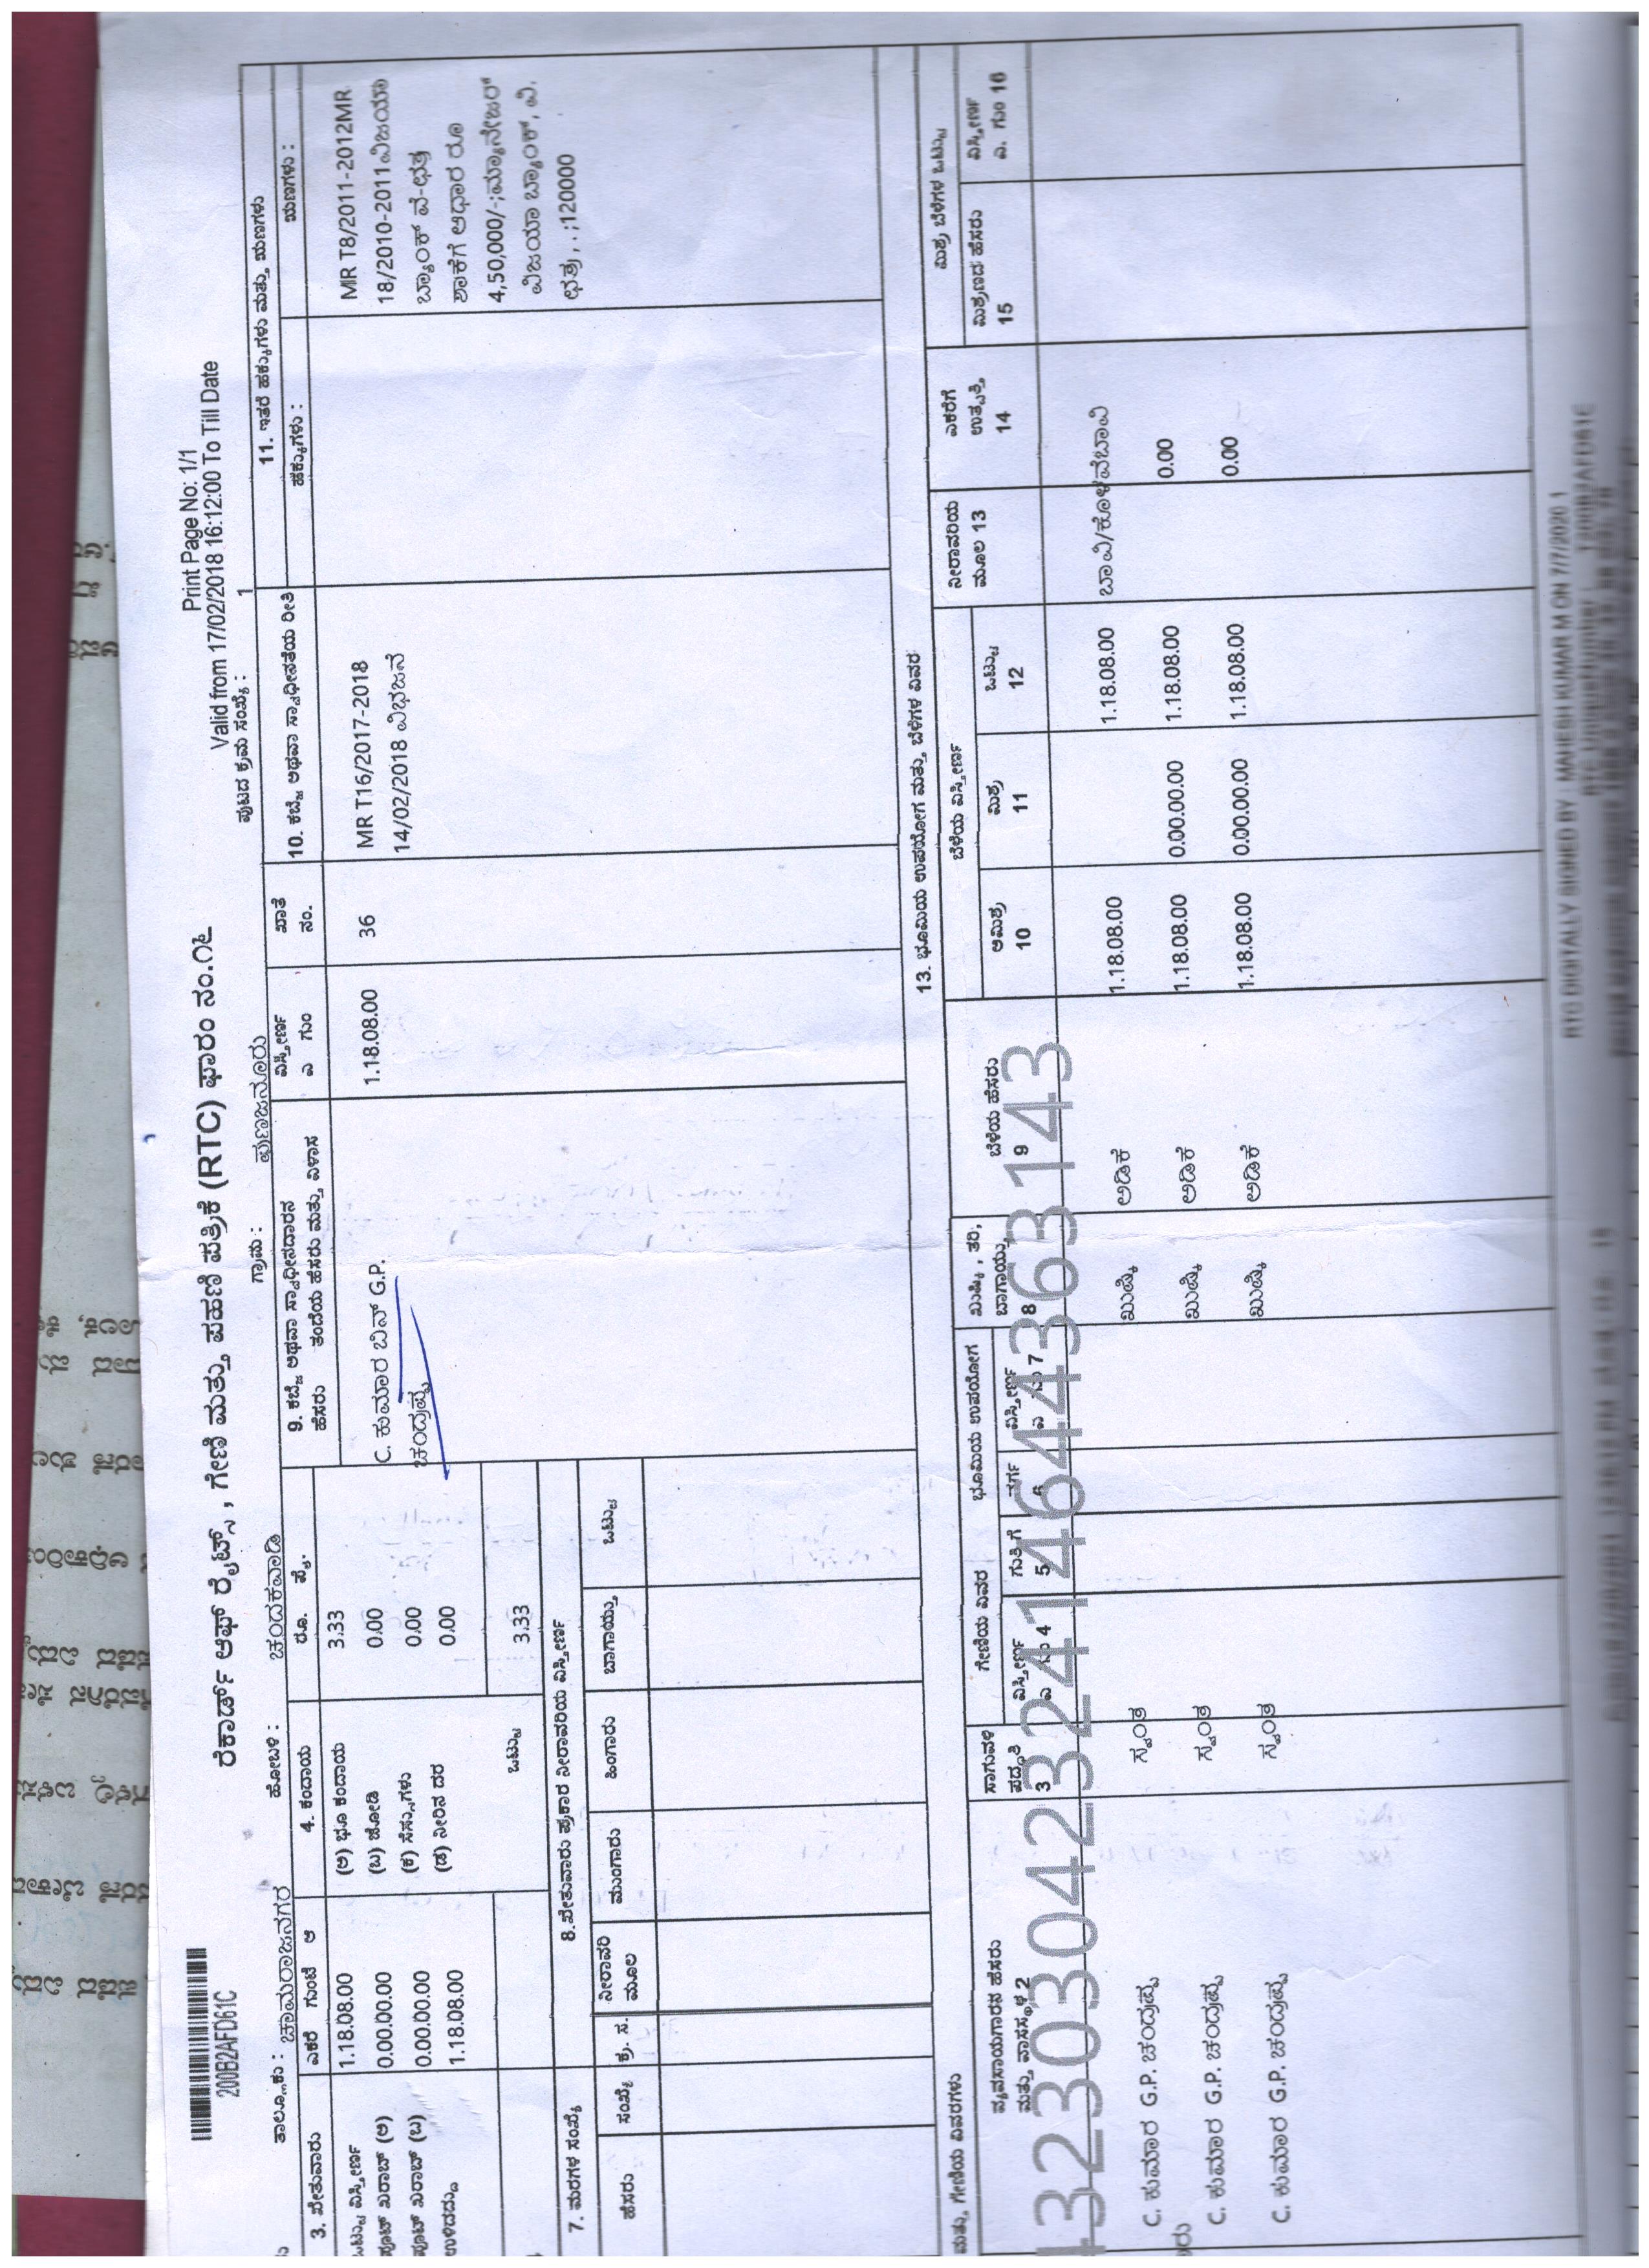 Print Page No: 1/1
Valid from 17/02/2018 16:12:00 To Till Date
200B2AFD61C
ರೆಕಾರ್ಡ್ ಆಫ್ ರೈಟ್ಸ್, ಗೇಣಿ ಮತ್ತು ಪಹಣಿ ಪತ್ರಿಕೆ (RTC) ಫಾರಂ ನಂ.೧೬
ಪುಟದ ಕ್ರಮ ಸಂಖ್ಯೆ : 1
ತಾಲ್ಲೂಕು : ಚಾಮರಾಜನಗರ ಹೋಬಳಿ : ಚಂದಕವಾಡಿ ಗ್ರಾಮ : ಪುಣಜನೂರು
3. ವಿಸ್ತೀರ್ಣ ಎಕರೆ ಗುಂಟೆ ಆ
ಒಟ್ಟು ವಿಸ್ತೀರ್ಣ 1.18.08.00
ಪೂಟ್ ಖರಾಬ್ (ಅ) 0.00.00.00
ಪೂಟ್ ಖರಾಬ್ (ಬ) 0.00.00.00
ಉಳಿದದ್ದು 1.18.08.00
4. ಕಂದಾಯ ರೂ. ಪೈ.
(ಅ) ಭೂ ಕಂದಾಯ 3.33
(ಬ) ಜೋಡಿ 0.00
(ಕ) ಸೆಸ್ಸುಗಳು 0.00
(ಡ) ನೀರಿನ ದರ 0.00
ಒಟ್ಟು 3.33
9. ಕಬ್ಜೆ ಅಥವಾ ಸ್ವಾಧೀನದಾರನ
ಹೆಸರು ತಂದೆಯ ಹೆಸರು ಮತ್ತು ವಿಳಾಸ
C. ಕುಮಾರ ಬಿನ್ G.P.
ಚಂದ್ರಪ್ಪ
ವಿಸ್ತೀರ್ಣ
ಎ ಗುಂ
1.18.08.00
ಖಾತೆ
ನಂ.
36
10. ಕಬ್ಜೆ ಅಥವಾ ಸ್ವಾಧೀನತೆಯ ರೀತಿ
MR T16/2017-2018
14/02/2018 ವಿಭಜನೆ
11. ಇತರೆ ಹಕ್ಕುಗಳು ಮತ್ತು ಋಣಗಳು
ಹಕ್ಕುಗಳು : ಋಣಗಳು :
MR T8/2011-2012MR
18/2010-2011 ವಿಜಯಾ
ಬ್ಯಾಂಕ್ ವೆ-ಛತ್ರ
ಶಾಕೆಗೆ ಆಧಾರ ರೂ
4,50,000/-;ಮ್ಯಾನೇಜರ್
ವಿಜಯಾ ಬ್ಯಾಂಕ್, ವಿ.
ಛತ್ರ, . ;120000
7. ಮರಗಳ ಸಂಖ್ಯೆ
ಹೆಸರು ಸಂಖ್ಯೆ
ಕ್ರ. ಸ. ನೀರಾವರಿ ಮೂಲ ಮುಂಗಾರು ಹಿಂಗಾರು ಬಾಗಾಯ್ತು ಒಟ್ಟು
ಮತ್ತು ಗೇಣಿಯ ವಿವರಗಳು
13. ಭೂಮಿಯ ಉಪಯೋಗ ಮತ್ತು ಬೆಳೆಗಳ ವಿವರ
ವ್ಯವಸಾಯಗಾರನ ಹೆಸರು
ಮತ್ತು ವಾಸಸ್ಥಳ 2
ಸಾಗುವಳಿ
ಪದ್ಧತಿ
3
ಗೇಣಿಯ ವಿವರ
ವಿಸ್ತೀರ್ಣ
4
ಗುತ್ತಿಗೆ
5
ಭೂಮಿಯ ಉಪಯೋಗ
ವರ್ಗ
6
ವಿಸ್ತೀರ್ಣ
7
ಖುಷ್ಕಿ, ತರಿ,
ಬಾಗಾಯ್ತು
8
ಬೆಳೆಯ ಹೆಸರು
9
ಬೆಳೆಯ ವಿಸ್ತೀರ್ಣ
ಅಮಿಶ್ರ
10
ಮಿಶ್ರ
11
ಒಟ್ಟು
12
ನೀರಾವರಿಯ
ಮೂಲ 13
ಎಕರೆಗೆ
ಉತ್ಪತ್ತಿ
14
ಮಿಶ್ರ ಬೆಳೆಗಳ ಒಟ್ಟು
ಮಿಶ್ರಣದ ಹೆಸರು
15
ವಿಸ್ತೀರ್ಣ
ಎ. ಗುಂ 16
C. ಕುಮಾರ G.P. ಚಂದ್ರಪ್ಪ ಸ್ವಂತ ಖುಷ್ಕಿ ಅಡಿಕೆ 1.18.08.00 1.18.08.00 ಬಾವಿ/ಕೊಳವೆಬಾವಿ
C. ಕುಮಾರ G.P. ಚಂದ್ರಪ್ಪ ಸ್ವಂತ ಖುಷ್ಕಿ ಅಡಿಕೆ 1.18.08.00 0.00.00.00 1.18.08.00 0.00
C. ಕುಮಾರ G.P. ಚಂದ್ರಪ್ಪ ಸ್ವಂತ ಖುಷ್ಕಿ ಅಡಿಕೆ 1.18.08.00 0.00.00.00 1.18.08.00 0.00
RTC DIGITALLY SIGNED BY : MAHESH KUMAR M ON 7/7/2020 1